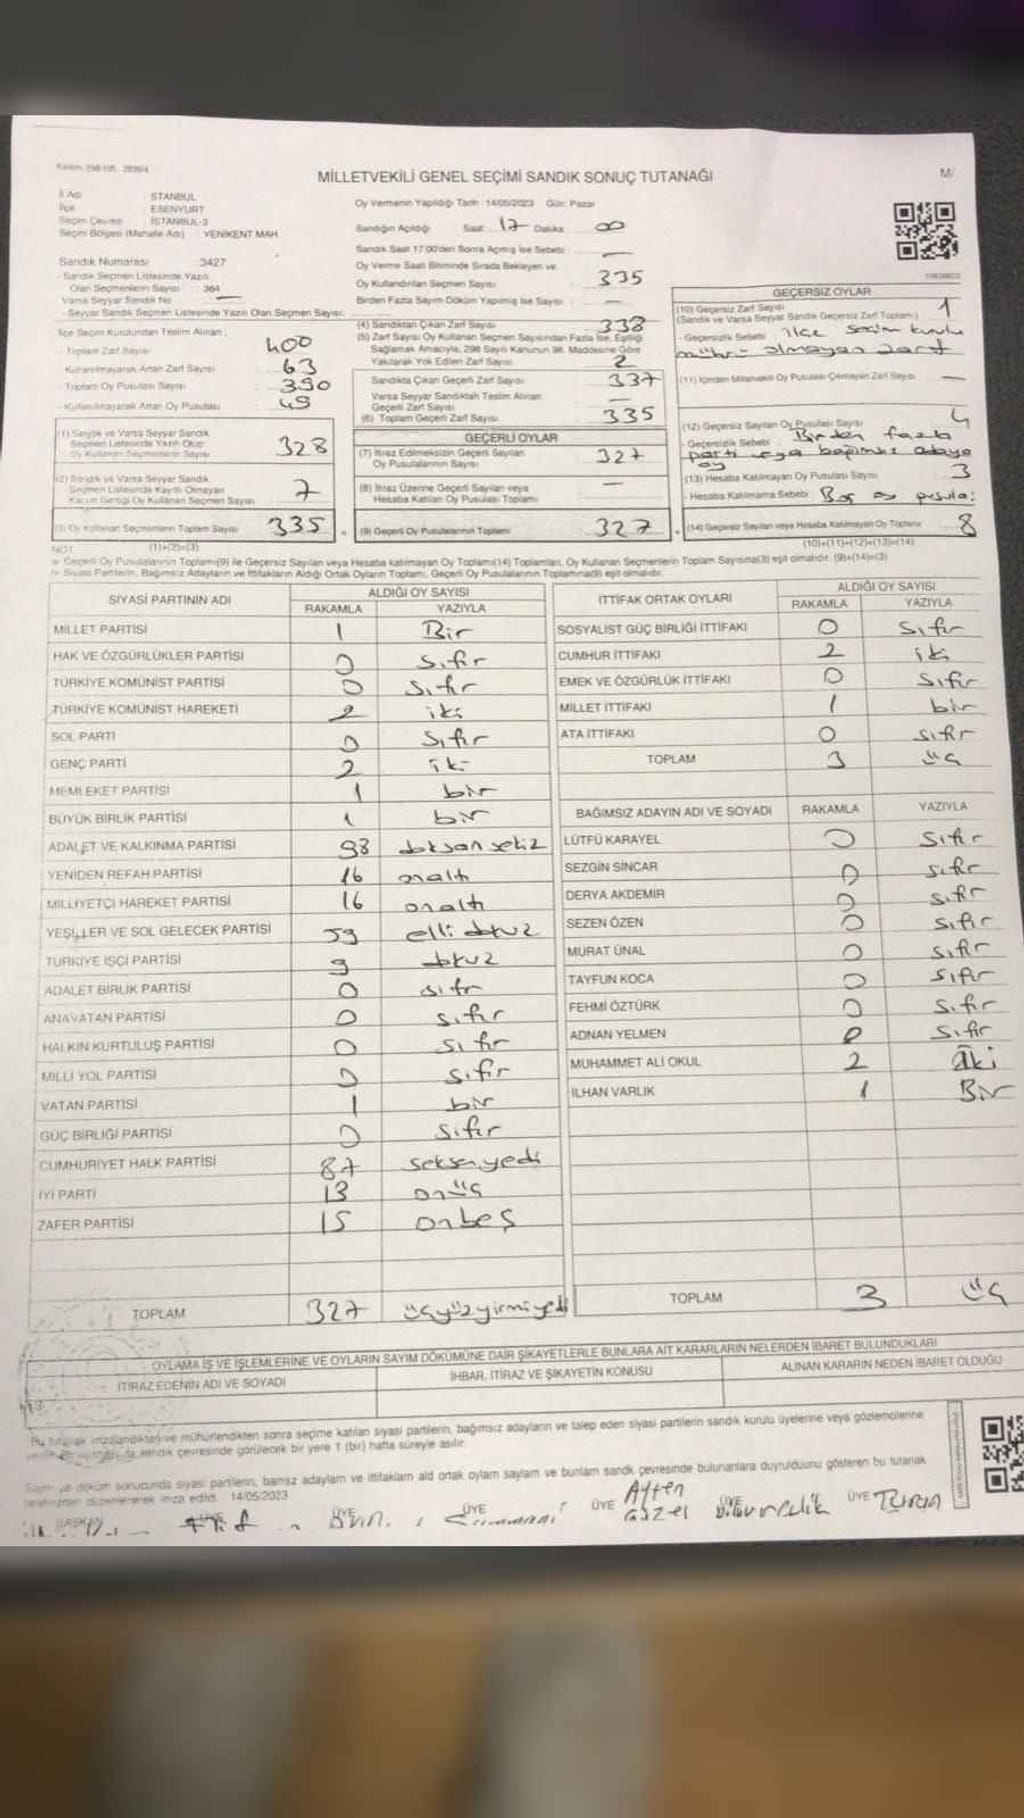 MİLLETVEKİLİ GENEL SEÇİMİ SANDIK SONUÇ TUTANAĞI
İl Adı İSTANBUL
İlçe ESENYURT
Seçim Çevresi İSTANBUL-3
Seçim Bölgesi (Mahalle Adı) YENİKENT MAH.
Sandık Numarası 3427
- Sandık Seçmen Listesinde Yazılı
Olan Seçmenlerin Sayısı : 364
Varsa Seyyar Sandık No —
- Seyyar Sandık Seçmen Listesinde Yazılı Olan Seçmen Sayısı:
İlçe Seçim Kurulundan Teslim Alınan ;
- Toplam Zarf Sayısı 400
- Kullanılmayarak Artan Zarf Sayısı : 63
- Toplam Oy Pusulası Sayısı : 390
- Kullanılmayarak Artan Oy Pusulası : 49
(1) Sandık ve Varsa Seyyar Sandık
Seçmen Listesinde Yazılı Olup
Oy Kullanan Seçmenlerin Sayısı 328
(2) Sandık ve Varsa Seyyar Sandık
Seçmen Listesinde Kayıtlı Olmayan
Kanun Gereği Oy Kullanan Seçmen Sayısı 7
(3) Oy Kullanan Seçmenlerin Toplam Sayısı 335
(1)+(2)=(3)
Oy Vermenin Yapıldığı Tarih : 14/05/2023 Gün: Pazar
Sandığın Açıldığı Saat: 17 Dakika 00
Sandık Saat 17.00'den Sonra Açmış İse Sebebi : —
Oy Verme Saati Bitiminde Sırada Bekleyen ve
Oy Kullandırılan Seçmen Sayısı : 335
Birden Fazla Sayım Döküm Yapılmış İse Sayısı : —
(4) Sandıktan Çıkan Zarf Sayısı : 338
(5) Zarf Sayısı Oy Kullanan Seçmen Sayısından Fazla İse, Eşitliği
Sağlamak Amacıyla, 298 Sayılı Kanunun 98. Maddesine Göre
Yakılarak Yok Edilen Zarf Sayısı : 2
Sandıkta Çıkan Geçerli Zarf Sayısı : 337
Varsa Seyyar Sandıktan Teslim Alınan
Geçerli Zarf Sayısı : —
(6) Toplam Geçerli Zarf Sayısı : 335
GEÇERLİ OYLAR
(7) İtiraz Edilmeksizin Geçerli Sayılan
Oy Pusulalarının Sayısı : 327
(8) İtiraz Üzerine Geçerli Sayılan veya
Hesaba Katılan Oy Pusulası Toplamı : —
(9) Geçerli Oy Pusulalarının Toplamı : 327
GEÇERSİZ OYLAR
(10) Geçersiz Zarf Sayısı 1
(Sandık ve Varsa Seyyar Sandık Geçersiz Zarf Toplamı)
- Geçersizlik Sebebi : ilçe seçim kurulu
mührü olmayan zarf
(11) İçinden Milletvekili Oy Pusulası Çıkmayan Zarf Sayısı —
(12) Geçersiz Sayılan Oy Pusulası Sayısı 4
- Geçersizlik Sebebi : Birden fazla
parti veya bağımsız adaya
oy
(13) Hesaba Katılmayan Oy Pusulası Sayısı 3
- Hesaba Katılmama Sebebi : Boş oy pusula:
(14) Geçersiz Sayılan veya Hesaba Katılmayan Oy Toplamı 8
(10)+(11)+(12)+(13)=(14)
NOT
Geçerli Oy Pusulalarının Toplamı(9) ile Geçersiz Sayılan veya Hesaba katılmayan Oy Toplamı(14) Toplamları, Oy Kullanan Seçmenlerin Toplam Sayısına(3) eşit olmalıdır. (9)+(14)=(3)
Siyasi Partilerin, Bağımsız Adayların ve İttifakların Aldığı Ortak Oyların Toplamı, Geçerli Oy Pusulalarının Toplamına(9) eşit olmalıdır.
SİYASİ PARTİNİN ADI ALDIĞI OY SAYISI
RAKAMLA YAZIYLA
MİLLET PARTİSİ 1 Bir
HAK VE ÖZGÜRLÜKLER PARTİSİ 0 Sıfır
TÜRKİYE KOMÜNİST PARTİSİ 0 Sıfır
TÜRKİYE KOMÜNİST HAREKETİ 2 iki
SOL PARTİ 0 Sıfır
GENÇ PARTİ 2 iki
MEMLEKET PARTİSİ 1 bir
BÜYÜK BİRLİK PARTİSİ 1 bir
ADALET VE KALKINMA PARTİSİ 98 doksan sekiz
YENİDEN REFAH PARTİSİ 16 onaltı
MİLLİYETÇİ HAREKET PARTİSİ 16 onaltı
YEŞİLLER VE SOL GELECEK PARTİSİ 59 elli dokuz
TÜRKİYE İŞÇİ PARTİSİ 9 dokuz
ADALET BİRLİK PARTİSİ 0 sıfır
ANAVATAN PARTİSİ 0 sıfır
HALKIN KURTULUŞ PARTİSİ 0 sıfır
MİLLİ YOL PARTİSİ 0 sıfır
VATAN PARTİSİ 1 bir
GÜÇ BİRLİĞİ PARTİSİ 0 Sıfır
CUMHURİYET HALK PARTİSİ 87 seksenyedi
İYİ PARTİ 13 onüç
ZAFER PARTİSİ 15 onbeş
TOPLAM 327 üçyüzyirmiyedi
İTTİFAK ORTAK OYLARI ALDIĞI OY SAYISI
RAKAMLA YAZIYLA
SOSYALİST GÜÇ BİRLİĞİ İTTİFAKI 0 Sıfır
CUMHUR İTTİFAKI 2 iki
EMEK VE ÖZGÜRLÜK İTTİFAKI 0 Sıfır
MİLLET İTTİFAKI 1 bir
ATA İTTİFAKI 0 Sıfır
TOPLAM 3 üç
BAĞIMSIZ ADAYIN ADI VE SOYADI RAKAMLA YAZIYLA
LÜTFÜ KARAYEL 0 Sıfır
SEZGİN SİNCAR 0 Sıfır
DERYA AKDEMİR 0 Sıfır
SEZEN ÖZEN 0 Sıfır
MURAT ÜNAL 0 Sıfır
TAYFUN KOCA 0 Sıfır
FEHMİ ÖZTÜRK 0 Sıfır
ADNAN YELMEN 0 Sıfır
MUHAMMET ALİ OKUL 2 iki
İLHAN VARLIK 1 Bir
TOPLAM 3 üç
OYLAMA İŞ VE İŞLEMLERİNE VE OYLARIN SAYIM DÖKÜMÜNE DAİR ŞİKAYETLERLE BUNLARA AİT KARARLARIN NELERDEN İBARET BULUNDUKLARI
İTİRAZ EDENİN ADI VE SOYADI İHBAR, İTİRAZ VE ŞİKAYETİN KONUSU ALINAN KARARIN NEDEN İBARET OLDUĞU
Bu tutanak imzalandıktan ve mühürlendikten sonra seçime katılan siyasi partilerin, bağımsız adayların ve talep eden siyasi partilerin sandık kurulu üyelerine veya gözlemcilerine
sandık çevresinde görülecek bir yere 1 (bir) hafta süreyle asılır.
Sayım ve döküm sonucunda siyasi partilerin, bamsz adayların ve ittifakların ald ortak oyların saylam ve bunların sandk çevresinde bulunanlara duyrulduunu gösteren bu tutanak
tarafımızdan düzenlenerek imza edildi. 14/05/2023
BAŞKAN ÜYE ÜYE ÜYE ÜYE ÜYE